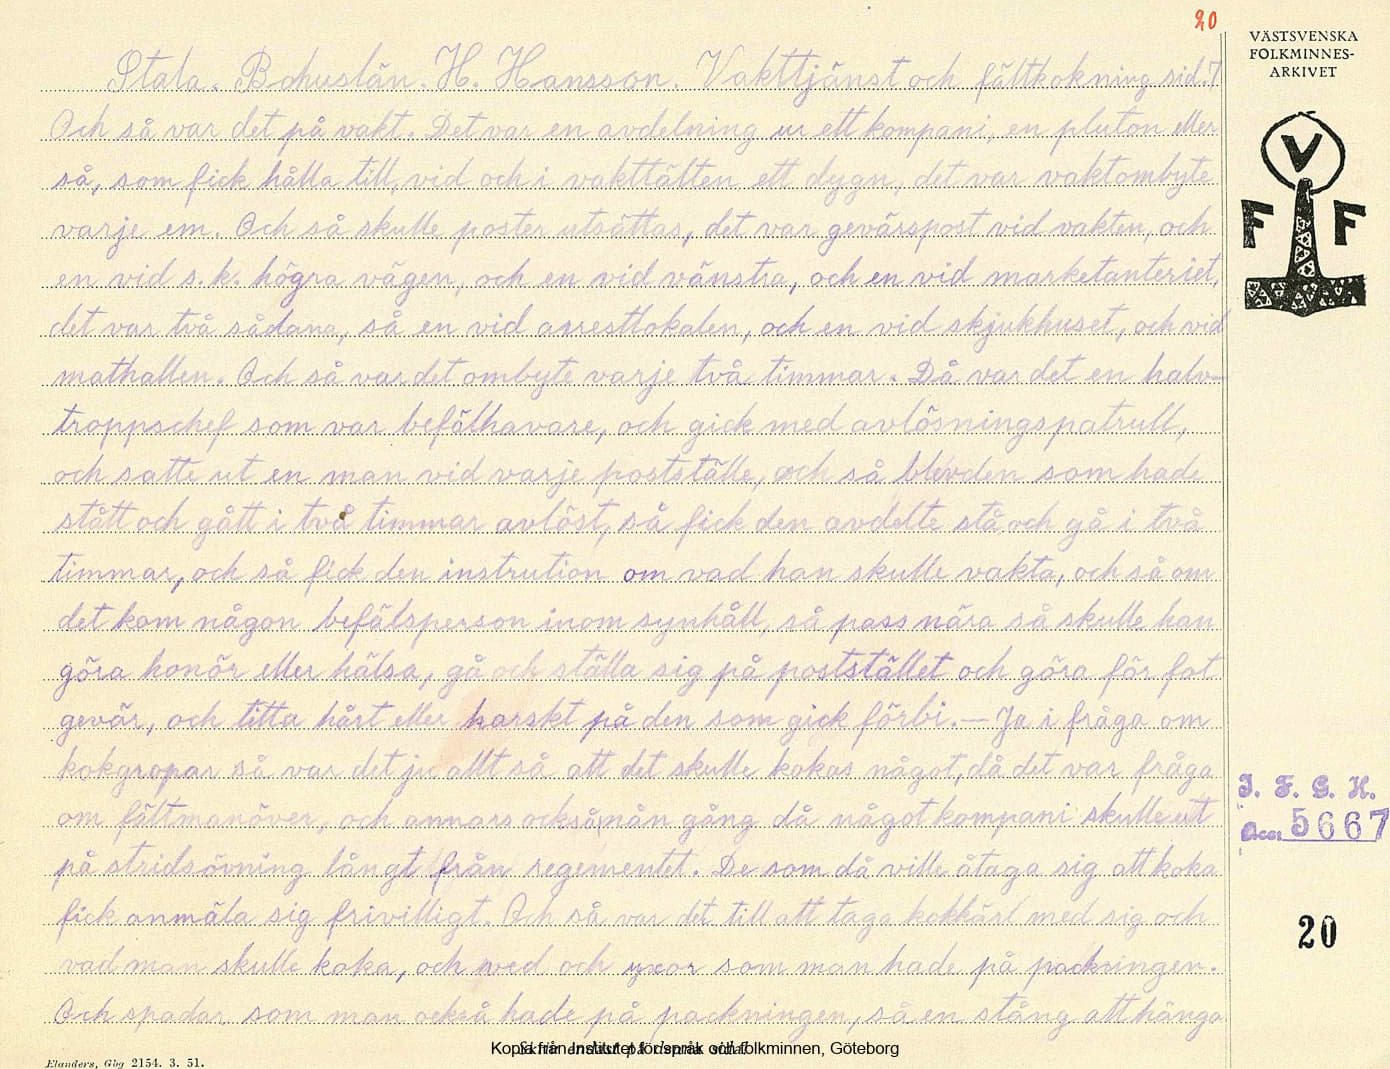 20
VÄSTSVENSKA
FOLKMINNES-
ARKIVET
V
F F
Stala. Bohuslän. H. Hansson. Vakttjänst och fältkokning sid. 7
Och så var det på vakt. Det var en avdelning ur ett kompani, en pluton eller
så, som fick hålla till, vid och i vakttälten ett dygn, det var vaktombyte
varje em. Och så skulle poster utsättas, det var gevärspost vid vakten, och
en vid s.k. högra vägen, och en vid vänstra, och en vid marketanteriet,
det var två sådana, så en vid arrestlokalen, och en vid skjukhuset, och vid
mathallen. Och så var det ombyte varje två timmar. Då var det en halv-
troppschef som var befälhavare, och gick med avlösningspatrull,
och satte ut en man vid varje postställe, och så blev den som hade
stått och gått i två timmar avlöst, så fick den avdelte stå och gå i två
timmar, och så fick den instrution om vad han skulle vakta, och så om
det kom någon befälsperson inom synhåll, så pass nära så skulle han
göra honör eller hälsa, gå och ställa sig på poststället och göra för fot
gevär, och titta hårt eller karskt på den som gick förbi. — Ja i fråga om
kokgropar så var det ju allt så att det skulle kokas något, då det var fråga
om fältmanöver, och annars också nån gång då något kompani skulle ut
på stridsövning långt från regementet. De som då ville åtaga sig att koka
fick anmäla sig frivilligt. Och så var det till att taga kokkärl med sig och
vad man skulle koka, och ved och yxor som man hade på packningen.
Och spadar som man också hade på packningen, så en stång att hänga
I. F. G. H.
Acc. 5667
20
Elanders, Gbg 2154. 3. 51.
Kopia från Institutet för språk och folkminnen, Göteborg